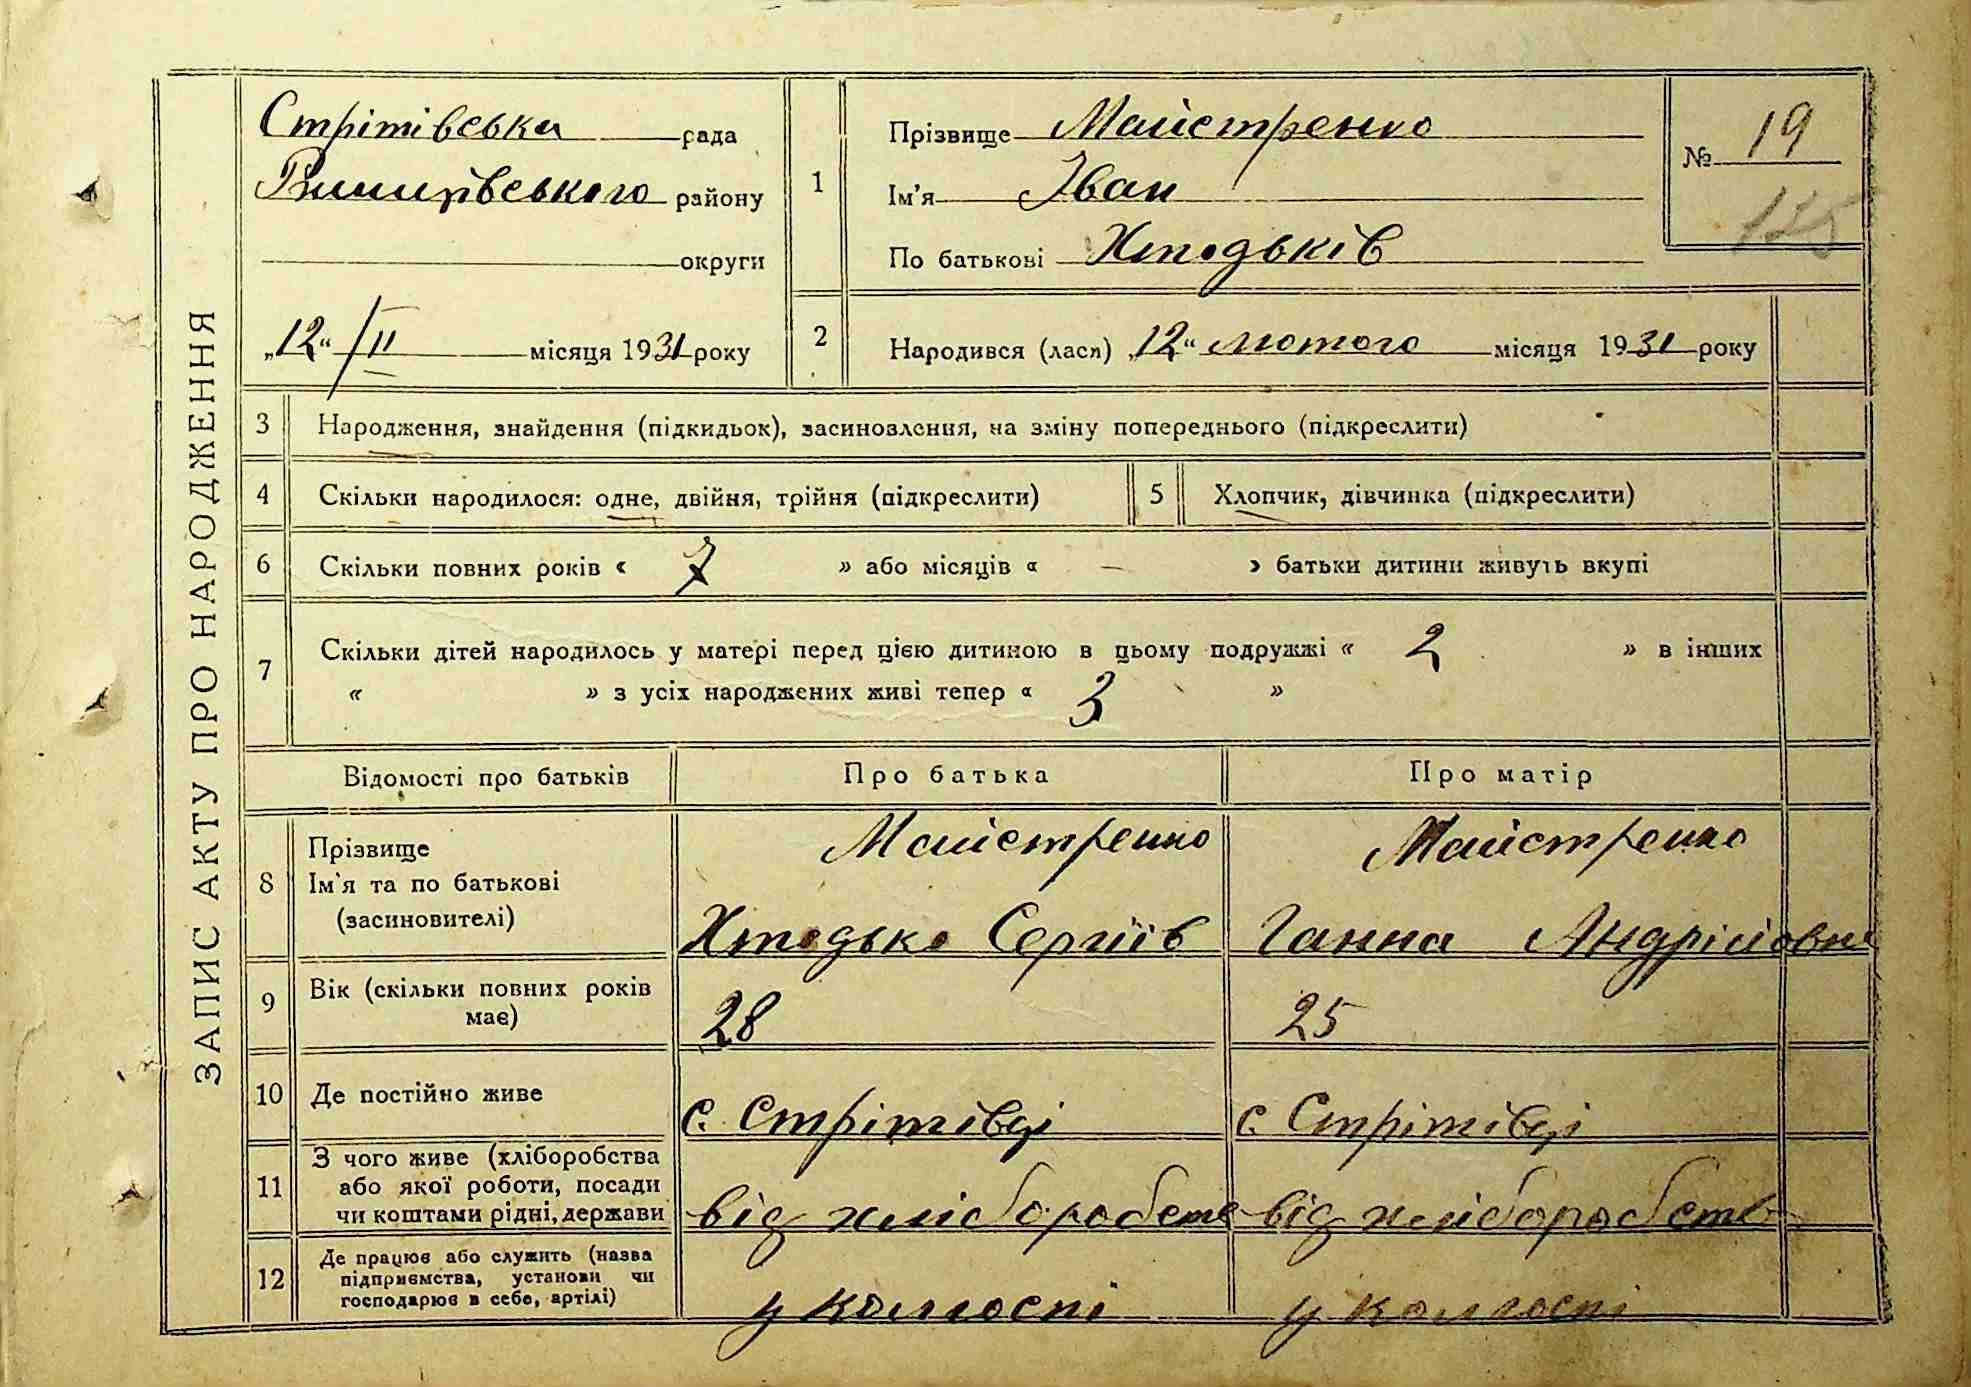 ЗАПИС АКТУ ПРО НАРОДЖЕННЯ
Стрітівська рада
району
округи
„12“ /II місяця 1931 року
1
Прізвище Майстренко
Ім'я Іван
По батькові Хтодьків
№ 19
2
Народився (лася) „12“ лютого місяця 1931 року
3 Народження, знайдення (підкидьок), засиновлення, на зміну попереднього (підкреслити)
4 Скільки народилося: одне, двійня, трійня (підкреслити)
5 Хлопчик, дівчинка (підкреслити)
6 Скільки повних років « 7 » або місяців « — » батьки дитини живуть вкупі
7 Скільки дітей народилось у матері перед цією дитиною в цьому подружжі « 2 » в інших
« » з усіх народжених живі тепер « 3 »
Відомості про батьків Про батька Про матір
8
Прізвище
Ім'я та по батькові
(засиновителі)
Майстренко
Хтодько Сергіїв
Майстренко
Ганна Андріїовна
9 Вік (скільки повних років
має)
28
25
10 Де постійно живе
с. Стрітівці
с. Стрітівці
11
З чого живе (хліборобства
або якої роботи, посади
чи коштами рідні, держави
від хліборобств
від хліборобств
12
Де працює або служить (назва
підприємства, установи чи
господарює в себе, артілі)
у колгоспі
у колгоспі